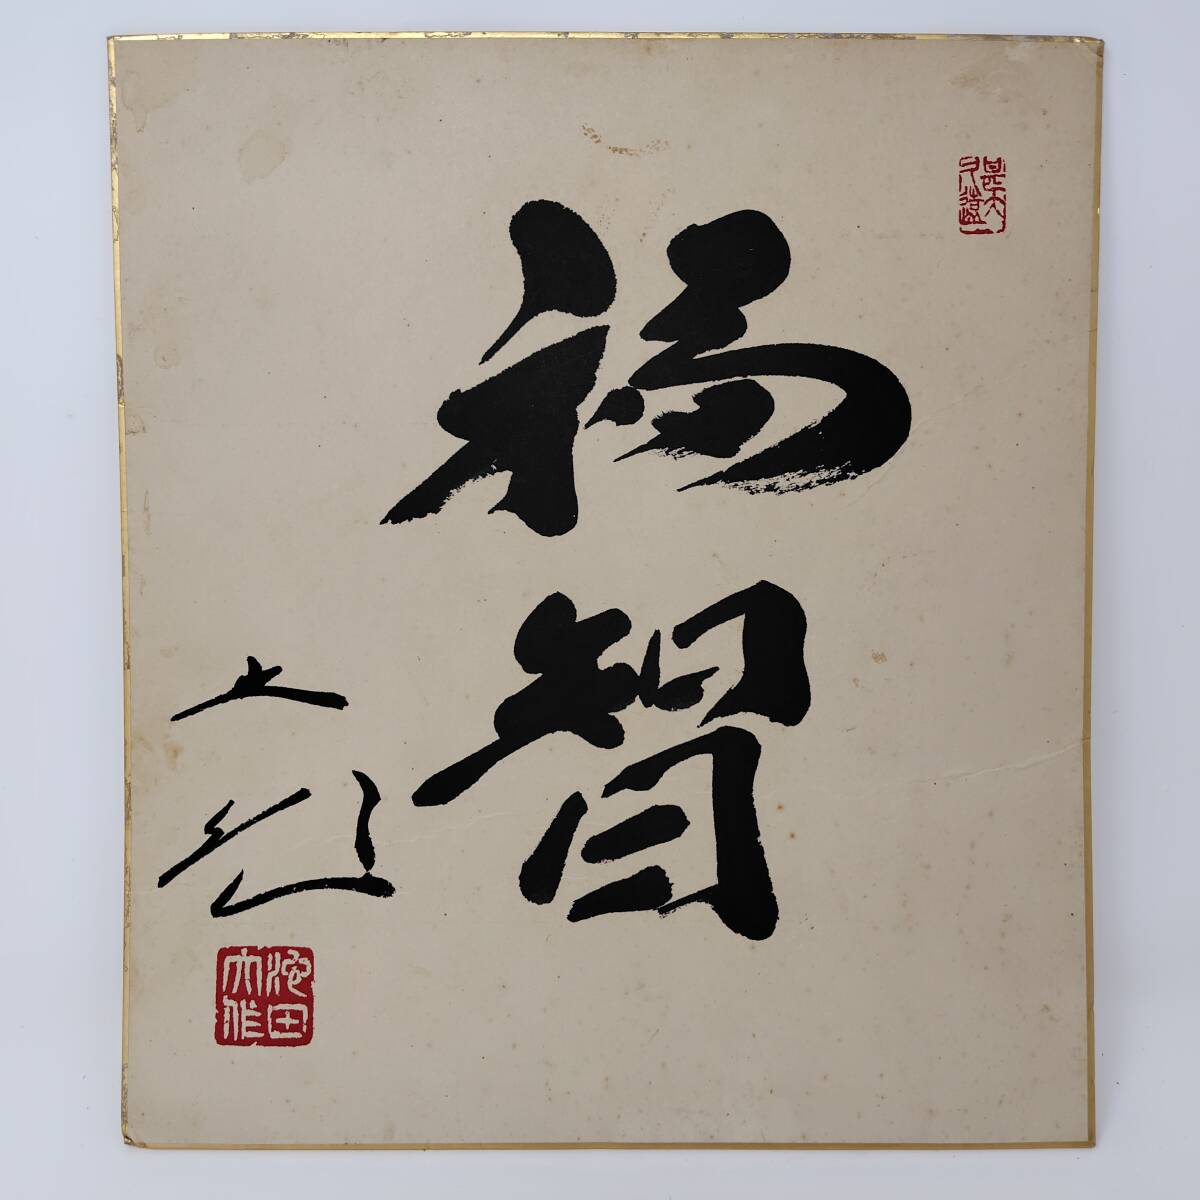 福
智
大作
池田
大作